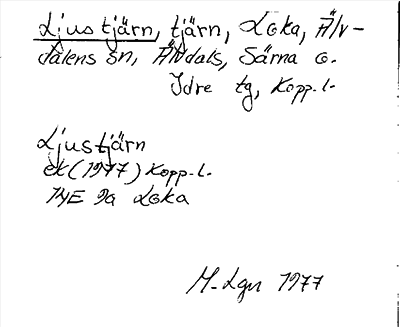 Ljustjärn, tjärn, Loka, Älv-
dalens sn, Älvdals, Särna o.
Idre tg, Kopp.l.
Ljustjärn
ek (1977) Kopp.l.
14E 9a Loka
M-Lgn 1977